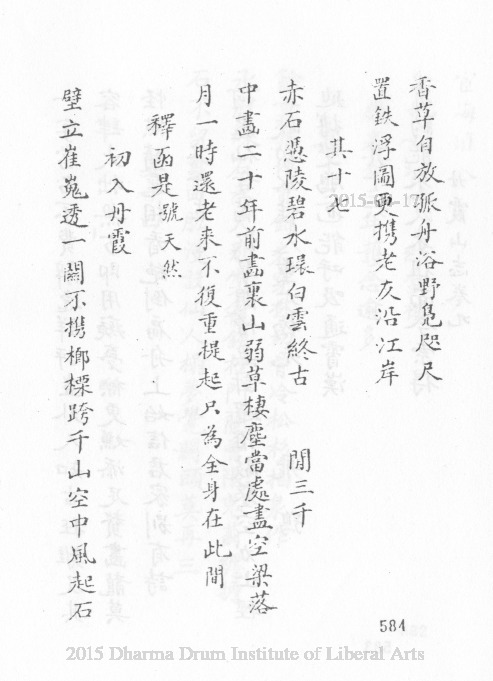 香草自放孤舟浴野鳧咫尺
置鉄浮圖更携老友沿江岸
其十
赤石憑陵碧水環白雲終古　閒三千
中畫二十年前畫裏山弱草棲塵當處盡空梁落
月一時還老來不復重提起只為全身在此間
釋函是號天然
初入丹霞
壁立崔嵬透一關不携榔標跨千山空中風起石
584
2015 Dharma Drum Institute of Liberal Arts